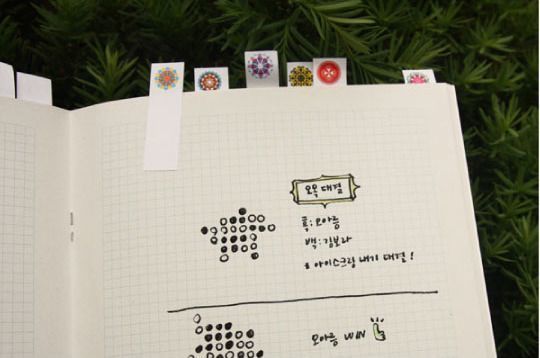 오목 대결
흑:오아름
백:김보라
아이스크림 내기 대결!
오아름 WIN